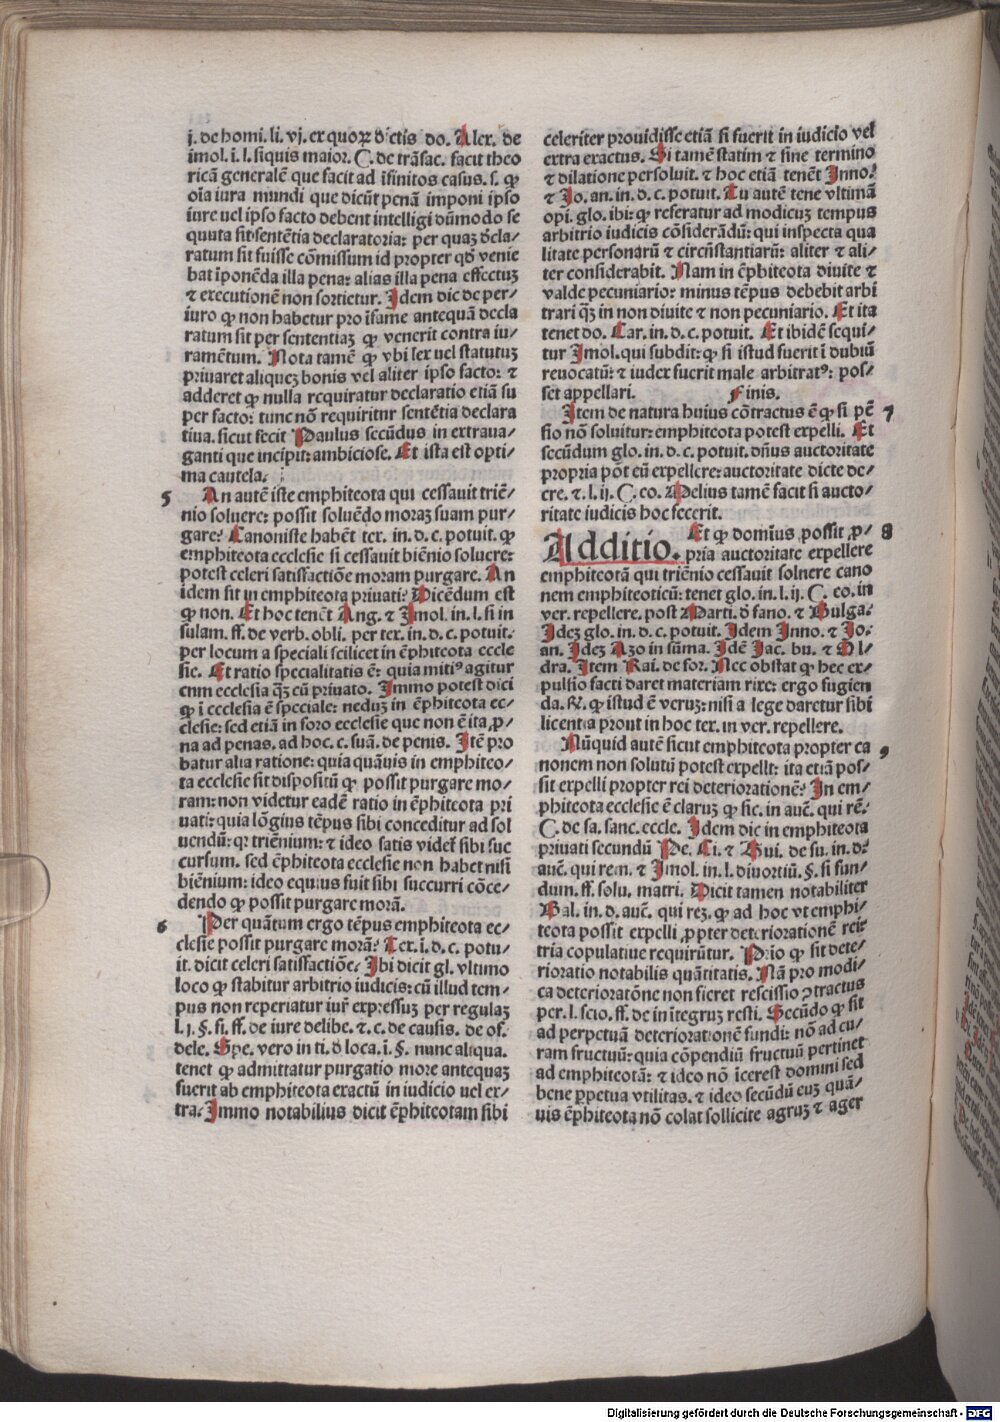 j. de homi. li. vj. ex quoꝝ dictis do. Alex. de
imol. ī. l. siquis maior. C. de trāsac. facit theo
ricā generalē que facit ad īfinitos casus. s. ꝙ
oīa iura mundi que dicūt penā imponi ipso
iure uel ipso facto debent intelligi dūmodo se
quuta sit sentētia declaratoria: per quaꝫ decla/
ratum sit fuisse cōmissum id propter qd̄ venie
bat īponēda illa pena: alias illa pena effectuꝫ
⁊ executionē non sortietur. Idem dic de per/
iuro ꝙ non habetur pro īfame antequā decla
ratum sit per sententiaꝫ ꝙ venerit contra iu/
ramētum. Nota tamē ꝙ vbi lex uel statutuꝫ
priuaret aliqueꝫ bonis vel aliter ipso facto: ⁊
adderet ꝙ nulla requiratur declaratio etiā su
per facto: tunc nō requiritur sentētia declara
tiua. sicut fecit Paulus secūdus in extraua/
ganti que incipit: ambiciose. Et ista est opti/
ma cautela.
5 An autē iste emphiteota qui cessauit triē/
nio soluere: possit soluēdo moraꝫ suam pur/
gare? Canoniste habēt ter. in. d. c. potuit. ꝙ
emphiteota ecclesie si cessauit biēnio soluere:
potest celeri satisfactiōe moram purgare. An
idem sit in emphiteota priuati? Dicēdum est
ꝙ non. Et hoc tenēt Ang. ⁊ Imol. in. l. si in
sulam. ff. de verb. obli. per tex. in. d. c. potuit.
per locum a speciali scilicet in ēphiteota eccle
sie. Et ratio specialitatis ē: quia mitiꝰ agitur
cum ecclesia qꝫ cū priuato. Immo potest dici
ꝙ ī ecclesia ē speciale: neduꝫ in ēphiteota ec/
clesie: sed etiā in foro ecclesie que non ē ita ꝓ/
na ad penas. ad hoc. c. suā. de penis. Itē pro
batur alia ratione: quia quāuis in emphiteo/
ta ecclesie sit dispositū ꝙ possit purgare mo/
ram: non videtur eadē ratio in ēphiteota pri
uati: quia lōgius tēpus sibi conceditur ad sol
uendū: qꝛ triēnium: ⁊ ideo satis videt̄ sibi suc
cursum. sed ēphiteota ecclesie non habet nisi
biēnium: ideo equius fuit sibi succurri cōce/
dendo ꝙ possit purgare morā.
6 Per quātum ergo tēpus emphiteota ec/
clesie possit purgare morā? Tex. ī. d. c. potu/
it. dicit celeri satisfactiōe. Ibi dicit gl. vltimo
loco ꝙ stabitur arbitrio iudicis: cū illud tem/
pus non reperiatur iur̄ expressuꝫ per regulaꝫ
l. j. §. si. ff. de iure delibe. ⁊. c. de causis. de of.
dele. Spe. vero in ti. d̄ loca. ī. §. nunc aliqua.
tenet ꝙ admittatur purgatio more antequaꝫ
fuerit ab emphiteota exactū in iudicio uel ex/
tra. Immo notabilius dicit ēphiteotam sibi
celeriter prouidisse etiā si fuerit in iudicio vel
extra exactus. Si tamē statim ⁊ sine termino
⁊ dilatione persoluit. ⁊ hoc etiā tenēt Inno.
⁊ Jo. an. in. d. c. potuit. Tu autē tene vltimā
opi. glo. ibi: ꝙ referatur ad modicuꝫ tempus
arbitrio iudicis cōsiderādū: qui inspecta qua
litate personarū ⁊ circūstantiarū: aliter ⁊ ali/
ter considerabit. Nam in ēphiteota diuite ⁊
valde pecuniario: minus tēpus debebit arbi
trari qꝫ in non diuite ⁊ non pecuniario. Et ita
tenet do. Car. in. d. c. potuit. Et ibidē sequi/
tur Imol. qui subdit: ꝙ si istud fuerit ī dubiū
reuocatū: ⁊ iudex fuerit male arbitratꝰ: pos/
set appellari. Finis.
Item de natura huius cōtractus ē ꝙ si pē 7
sio nō soluitur: emphiteota potest expelli. Et
secūdum glo. in. d. c. potuit. dn̄us auctoritate
propria pōt eū expellere: auctoritate dicte de/
cre. ⁊. l. ij. C. eo. Melius tamē facit si aucto/
ritate iudicis hoc fecerit.
Additio. Et ꝙ domin̄us possit ꝓ/ 8
pria auctoritate expellere
emphiteotā qui triēnio cessauit soluere cano
nem emphiteoticū: tenet glo. in. l. ij. C. eo. in
ver. repellere. post Marti. d̄ fano. ⁊ Bulga.
Ideꝫ glo. in. d. c. potuit. Idem Inno. ⁊ Jo.
an. Ideꝫ Azo in sūma. Idē Jac. bu. ⁊ Ol/
dra. Item Rai. de for. Nec obstat ꝙ hec ex/
pulsio facti daret materiam rixe: ergo fugien
da. R̄. ꝙ istud ē veruꝫ: nisi a lege daretur sibi
licentia prout in hoc tex. in ver. repellere.
Nūquid autē sicut emphiteota propter ca 9
nonem non solutū potest expelli: ita etiā pos/
sit expelli propter rei deteriorationē? In em/
phiteota ecclesie ē claruꝫ ꝙ sic. in auē. qui rē.
C. de sa. sanc. eccle. Idem dic in emphiteota
priuati secundū Pe. Ci. ⁊ Gui. de su. in. d.
auē. qui rem. ⁊ Imol. in. l. diuortiū. §. si fun/
dum. ff. solu. matri. Dicit tamen notabiliter
Bal. in. d. auē. qui reꝫ. ꝙ ad hoc vt emphi/
teota possit expelli ꝓpter deteriorationē rei:
tria copulatiue requirūtur. Prīo ꝙ sit dete/
rioratio notabilis quātitatis. Nā pro modi/
ca deterioratōne non fieret rescissio ꝯtractus
per. l. scio. ff. de in ītegruꝫ resti. Secūdo ꝙ sit
ad perpetuā deteriorationē fundi: nō ad cu/
ram fructuū: quia cōpendiū fructuū pertinet
ad emphiteotā: ⁊ ideo nō īterest domini sed
bene ꝑpetua vtilitas. ⁊ ideo secūdū euꝫ quā/
uis ēphiteota nō colat sollicite agruꝫ ⁊ ager
Digitalisierung gefördert durch die Deutsche Forschungsgemeinschaft - DFG